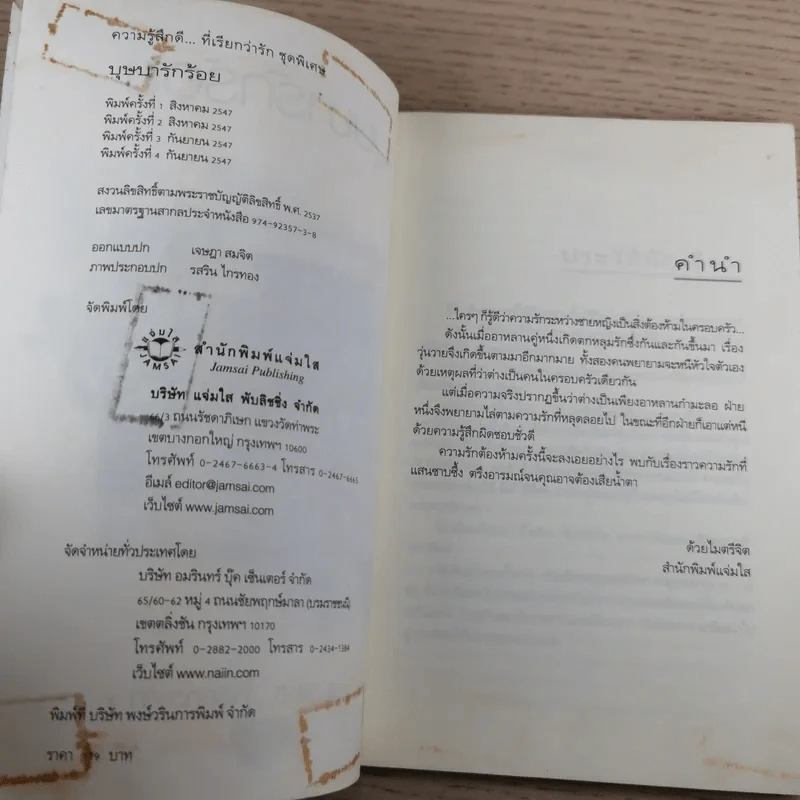 ความรู้สึกดี... ที่เรียกว่ารัก ชุดพิเศษ
บุษบารักร้อย
พิมพ์ครั้งที่ 1 สิงหาคม 2547
พิมพ์ครั้งที่ 2 สิงหาคม 2547
พิมพ์ครั้งที่ 3 กันยายน 2547
พิมพ์ครั้งที่ 4 กันยายน 2547
สงวนลิขสิทธิ์ตามพระราชบัญญัติลิขสิทธิ์ พ.ศ. 2537
เลขมาตรฐานสากลประจำหนังสือ 974-92357-3-8
ออกแบบปก เจษฎา สมจิต
ภาพประกอบปก รสริน ไกรทอง
จัดพิมพ์โดย
แจ่มใส
JAMSAI
สำนักพิมพ์แจ่มใส
Jamsai Publishing
บริษัท แจ่มใส พับลิชชิ่ง จำกัด
ถนนรัชดาภิเษก แขวงวัดท่าพระ
เขตบางกอกใหญ่ กรุงเทพฯ 10600
โทรศัพท์ 0-2467-6663-4 โทรสาร 0-2467-6665
อีเมล์ editor@jamsai.com
เว็บไซต์ www.jamsai.com
จัดจำหน่ายทั่วประเทศโดย
บริษัท อมรินทร์ บุ๊ค เซ็นเตอร์ จำกัด
65/60-62 หมู่ 4 ถนนชัยพฤกษ์มาลา (บรมราชชนนี)
เขตตลิ่งชัน กรุงเทพฯ 10170
โทรศัพท์ 0-2882-2000 โทรสาร 0-2434-1384
เว็บไซต์ www.naiin.com
พิมพ์ที่ บริษัท พงษ์วรินการพิมพ์ จำกัด
ราคา บาท
คำนำ
...ใครๆ ก็รู้ดีว่าความรักระหว่างชายหญิงเป็นสิ่งต้องห้ามในครอบครัว...
ดังนั้นเมื่ออาหลานคู่หนึ่งเกิดตกหลุมรักซึ่งกันและกันขึ้นมา เรื่อง
วุ่นวายจึงเกิดขึ้นตามมาอีกมากมาย ทั้งสองคนพยายามจะหนีหัวใจตัวเอง
ด้วยเหตุผลที่ว่าต่างเป็นคนในครอบครัวเดียวกัน
แต่เมื่อความจริงปรากฏขึ้นว่าต่างเป็นเพียงอาหลานกำมะลอ ฝ่าย
หนึ่งจึงพยายามไล่ตามความรักที่หลุดลอยไป ในขณะที่อีกฝ่ายก็เอาแต่หนี
ด้วยความรู้สึกผิดชอบชั่วดี
ความรักต้องห้ามครั้งนี้จะลงเอยอย่างไร พบกับเรื่องราวความรักที่
แสนซาบซึ้ง ตรึงอารมณ์จนคุณอาจต้องเสียน้ำตา
ด้วยไมตรีจิต
สำนักพิมพ์แจ่มใส